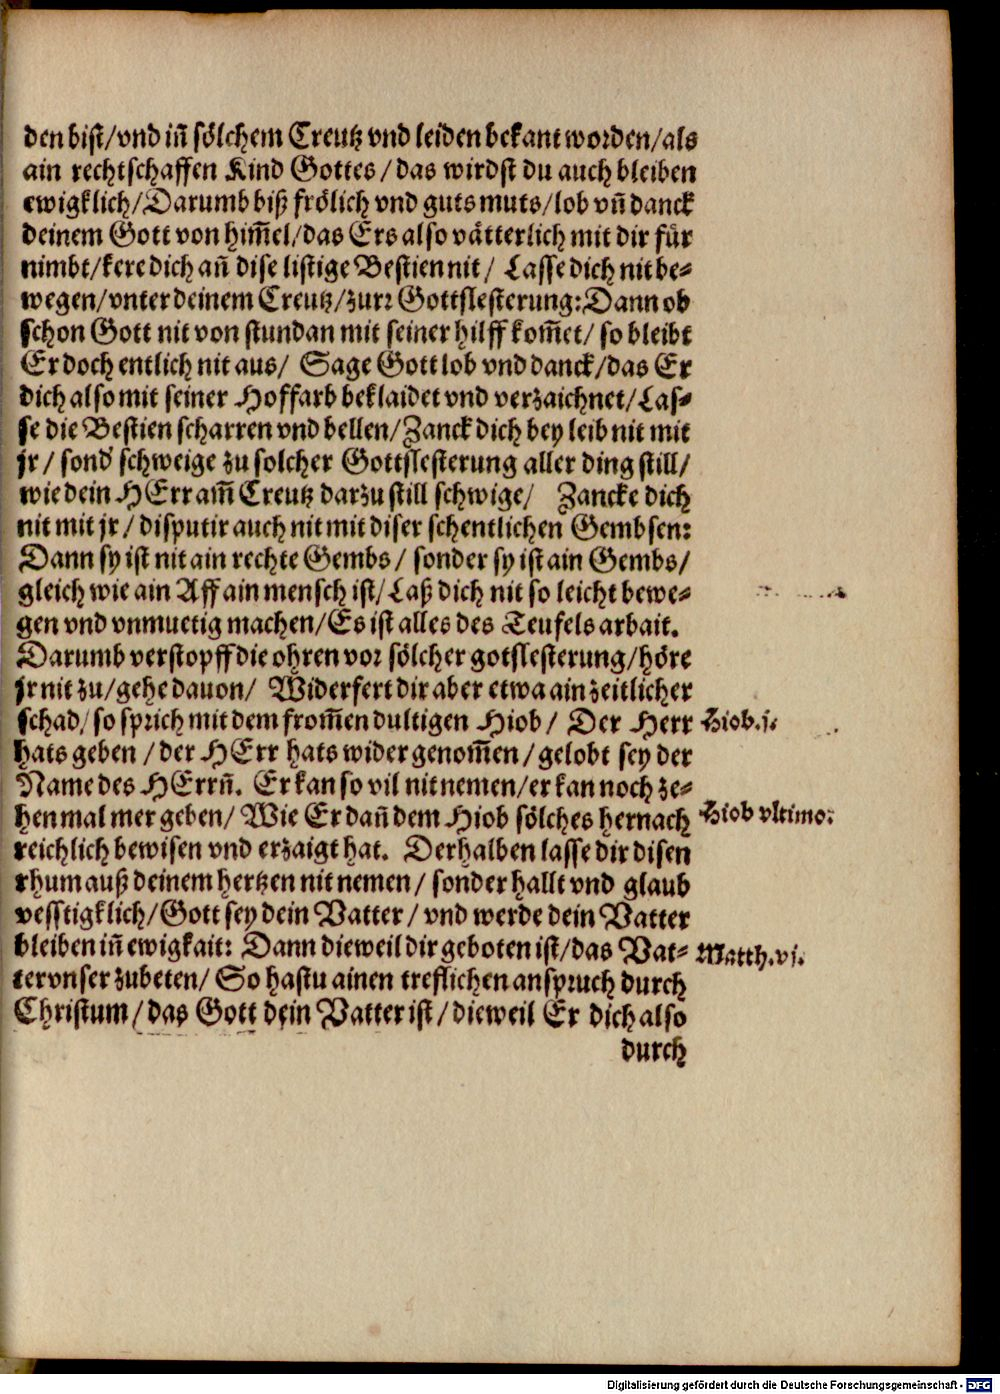 den bist/vnd iñ sölchem Creutz vnd leiden bekant worden/als
ain rechtschaffen Kind Gottes/das wirdst du auch bleiben
ewigklich/Darumb biß frölich vnd guts muts/lob vñ danck
deinem Gott von him̃el/das Ers also vätterlich mit dir für
nimbt/kere dich añ dise listige Bestien nit/ Lasse dich nit be-
wegen/vnter deinem Creutz/zur: Gottslesterung: Dann ob
schon Gott nit von stundan mit seiner hilff kom̃et/ so bleibt
Er doch entlich nit aus/ Sage Gott lob vnd danck/das Er
dich also mit seiner Hoffarb beklaidet vnd verzaichnet/Las-
se die Bestien scharren vnd bellen/Zanck dich bey leib nit mit
jr/ sond' schweige zu solcher Gottslesterung aller ding still/
wie dein HErr am̃ Creutz darzu still schwige/ Zancke dich
nit mit jr/ disputir auch nit mit diser schentlichen Gembsen:
Dann sy ist nit ain rechte Gembs/ sonder sy ist ain Gembs/
gleich wie ain Aff ain mensch ist/Laß dich nit so leicht bewe-
gen vnd vnmuetig machen/Es ist alles des Teufels arbait.
Darumb verstopff die ohren vor sölcher gotslesterung/höre
jr nit zu/gehe dauon/ Widerfert dir aber etwa ain zeitlicher
schad/so sprich mit dem from̃en dultigen Hiob/ Der Herr
Hiob.j.
hats geben /der HErr hats wider genom̃en/gelobt sey der
Name des HErrñ. Er kan so vil nit nemen/er kan noch ze-
hen mal mer geben/ Wie Er dañ dem Hiob sölches hernach
Hiob vltimo:
reichlich bewisen vnd erzaigt hat. Derhalben lasse dir disen
rhum auß deinem hertzen nit nemen/ sonder hallt vnd glaub
vesstigklich/Gott sey dein Vatter/ vnd werde dein Vatter
bleiben iñ ewigkait: Dann dieweil dir geboten ist/das Vat-
Matth.vj.
ter vnser zubeten/ So hastu ainen treflichen anspruch durch
Christum/das Gott dein Vatter ist/dieweil Er dich also
durch
Digitalisierung gefördert durch die Deutsche Forschungsgemeinschaft - DFG